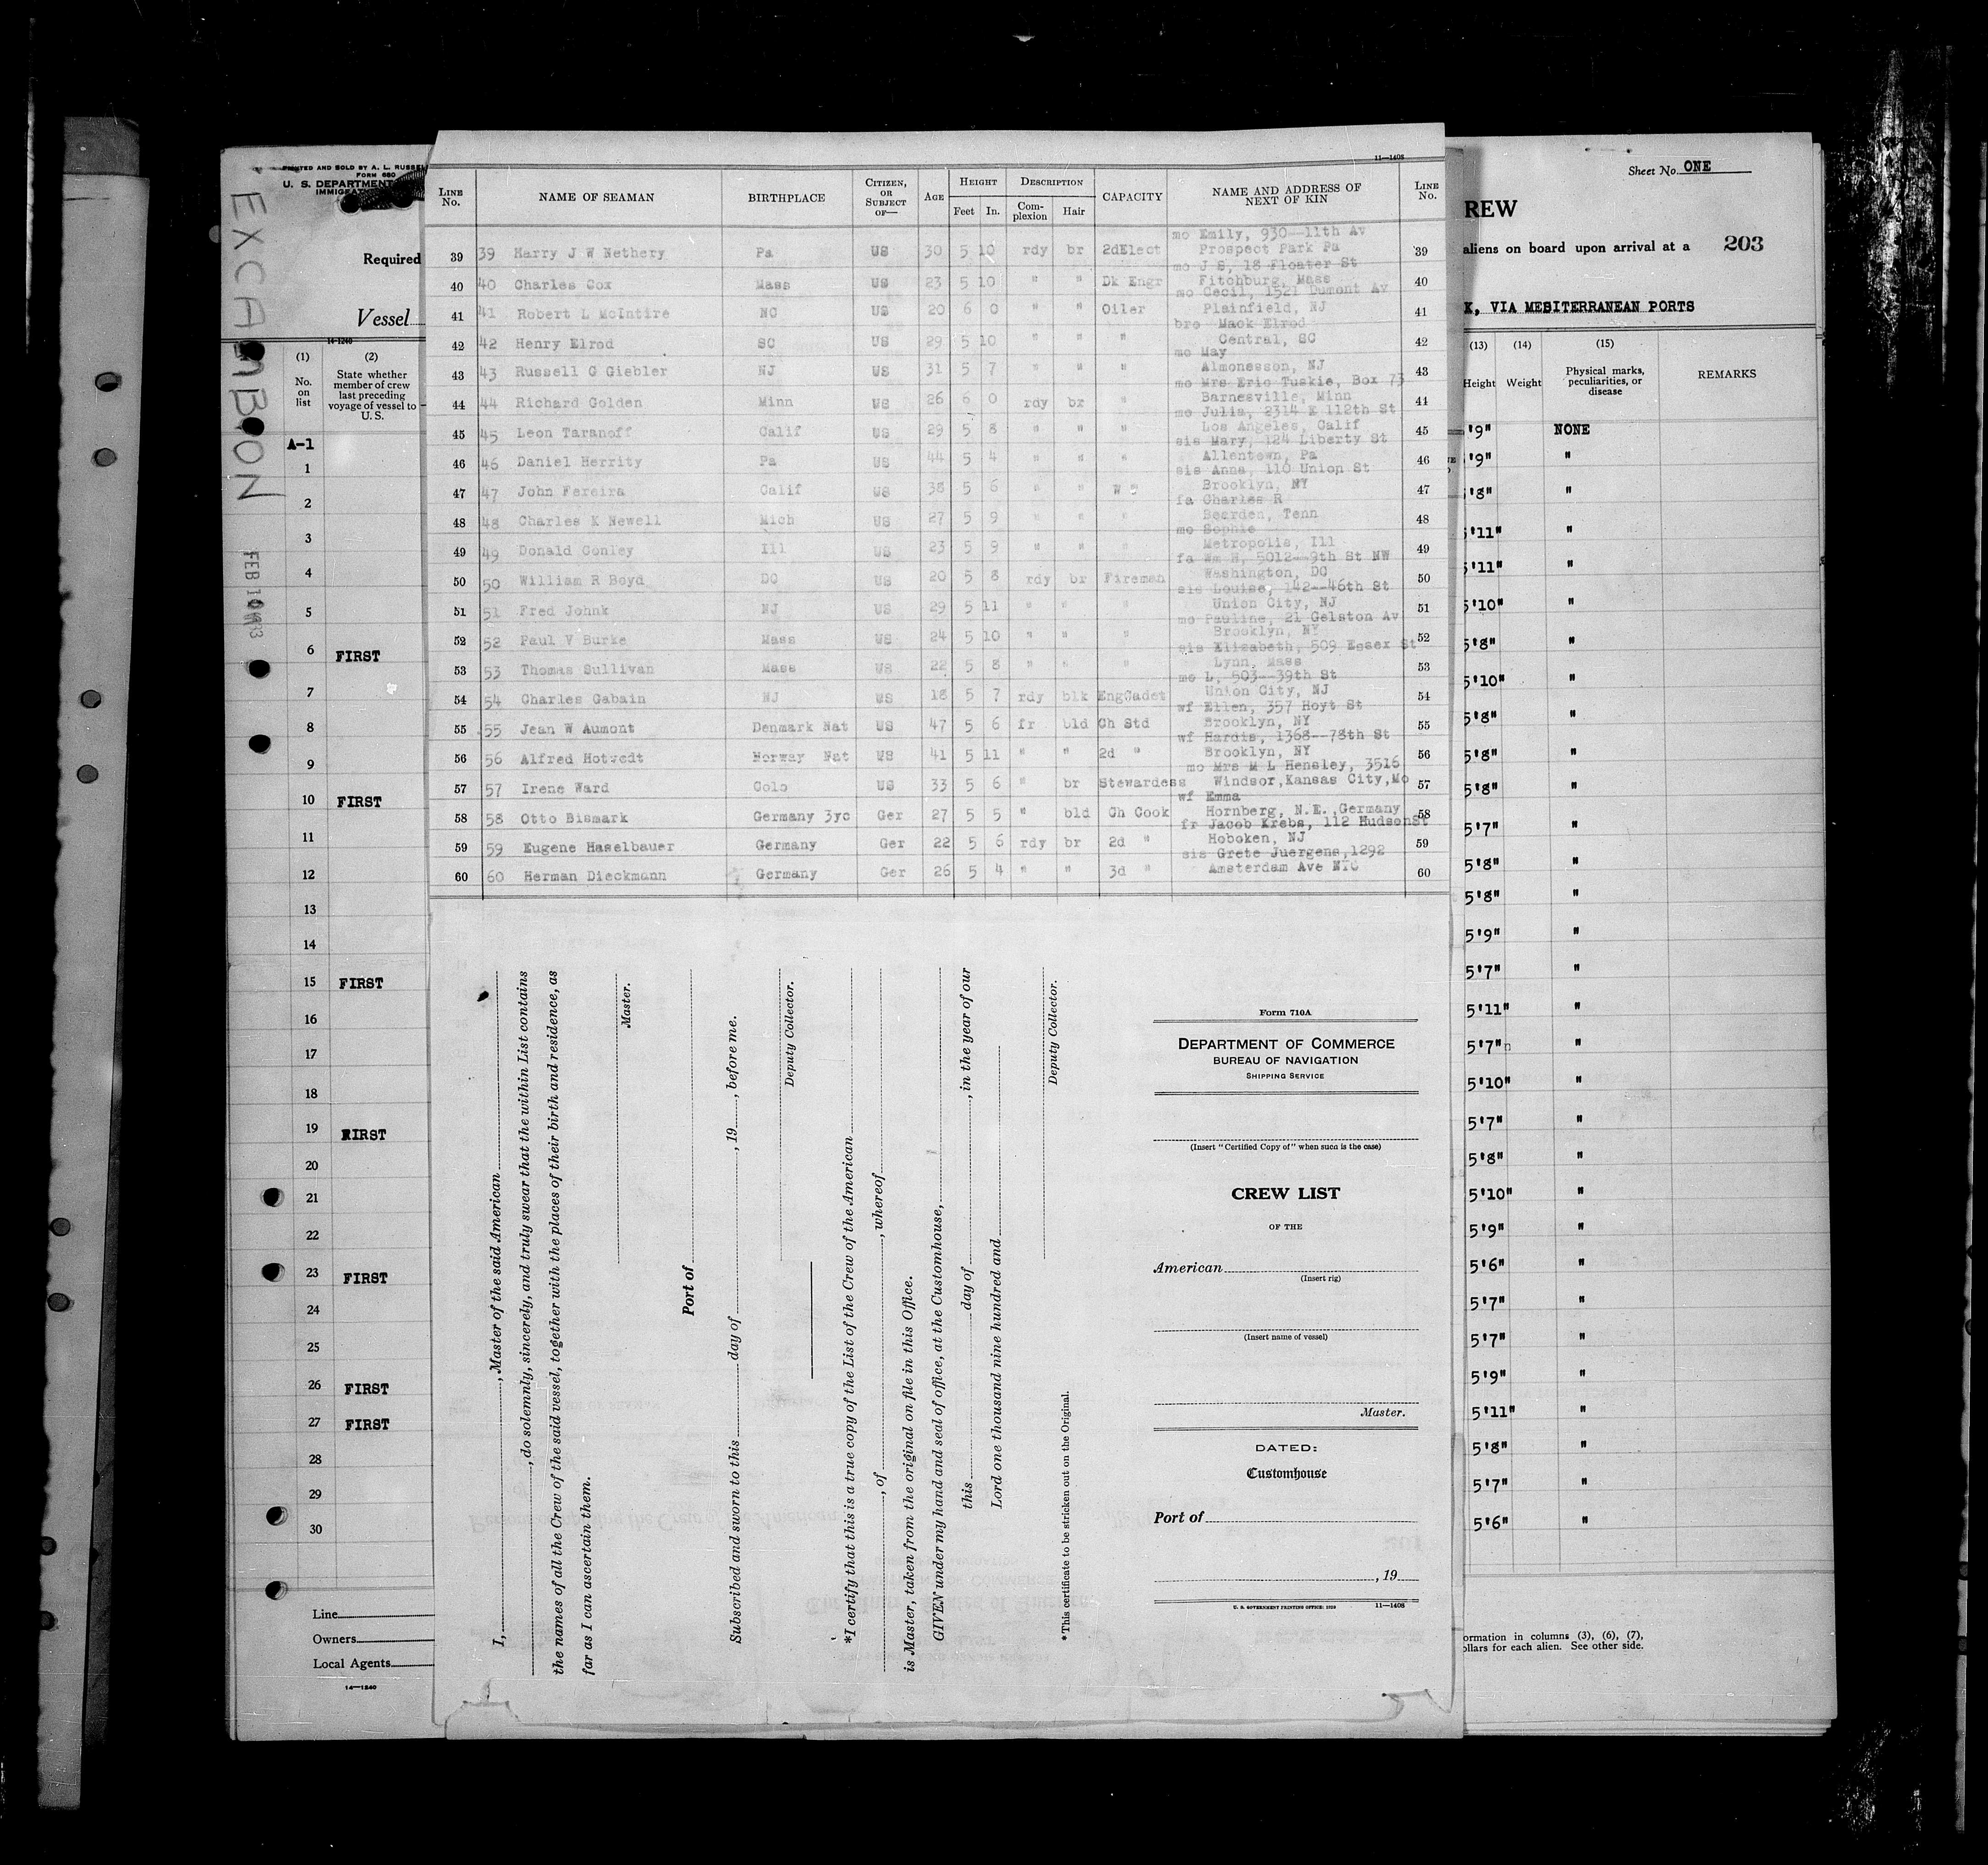 PRINTED AND SOLD BY A. L. RUSSEL
FORM 680
U. S. DEPARTMENT
IMMIGRAT
EXCAMBION
FEB 10
Required
Vessel
14-1240
(1) (2)
No. on list
State whether member of crew last preceding voyage of vessel to U. S.
A-1
1
2
3
4
5
6 FIRST
7
8
9
10 FIRST
11
12
13
14
15 FIRST
16
17
18
19 FIRST
20
21
22
23 FIRST
24
25
26 FIRST
27 FIRST
28
29
30
Line
Owners
Local Agents
14—1240
11—1408
LINE No. NAME OF SEAMAN BIRTHPLACE CITIZEN, OR SUBJECT OF— AGE HEIGHT Feet In. DESCRIPTION Complexion Hair CAPACITY NAME AND ADDRESS OF NEXT OF KIN LINE No.
mo Emily, 930--11th Av
39 39 Harry J W Nethery Pa US 30 5 10 rdy br 2dElect Prospect Park Pa 39
mo J S, 18 Floater St
40 40 Charles Cox Mass US 23 5 10 " " Dk Engr Fitchburg, Mass 40
mo Cecil, 1521 Dumont Av
41 41 Robert L McIntire NC US 20 6 0 " " Oiler Plainfield, NJ 41
bro Mack Elrod
42 42 Henry Elrod SC US 29 5 10 " " " Central, SC 42
mo May
43 43 Russell G Giebler NJ US 31 5 7 " " " Almonesson, NJ 43
mo Mrs Eric Tuskie, Box 73
44 44 Richard Golden Minn US 26 6 0 rdy br " Barnesville, Minn 44
mo Julia, 2314 E 112th St
45 45 Leon Taranoff Calif US 29 5 8 " " " Los Angeles, Calif 45
sis Mary, 124 Liberty St
46 46 Daniel Herrity Pa US 44 5 4 " " " Allentown, Pa 46
sis Anna, 110 Union St
47 47 John Fereira Calif US 38 5 6 " " W T Brooklyn, NY 47
fa Charles R
48 48 Charles K Newell Mich US 27 5 9 " " " Bearden, Tenn 48
mo Sophie
49 49 Donald Conley Ill US 23 5 9 " " " Metropolis, Ill 49
fa Wm H, 5012--9th St NW
50 50 William R Boyd DC US 20 5 8 rdy br Fireman Washington, DC 50
sis Louise, 142--46th St
51 51 Fred Johnk NJ US 29 5 11 " " " Union City, NJ 51
mo Pauline, 21 Gelston Av
52 52 Paul V Burke Mass US 24 5 10 " " " Brooklyn, NY 52
sis Elizabeth, 509 Essex St
53 53 Thomas Sullivan Mass US 22 5 8 " " " Lynn, Mass 53
mo L, 503--39th St
54 54 Charles Gabain NJ US 18 5 7 rdy blk EngCadet Union City, NJ 54
wf Ellen, 357 Hoyt St
55 55 Jean W Aumont Denmark Nat US 47 5 6 fr bld Ch Std Brooklyn, NY 55
wf Hardis, 1368--78th St
56 56 Alfred Hotvedt Norway Nat US 41 5 11 " " 2d " Brooklyn, NY 56
mo Mrs M L Hensley, 3516
57 57 Irene Ward Colo US 33 5 6 " br Stewardess Windsor,Kansas City,Mo 57
wf Emma
58 58 Otto Bismark Germany 3yc Ger 27 5 5 " bld Ch Cook Hornberg, N.E.,Germany 58
fr Jacob Krebs, 112 HudsonSt
59 59 Eugene Haselbauer Germany Ger 22 5 6 rdy br 2d " Hoboken, NJ 59
sis Grete Juergens,1292
60 60 Herman Dieckmann Germany Ger 26 5 4 " " 3d " Amsterdam Ave NYC 60
I, , Master of the said American
, do solemnly, sincerely, and truly swear that the within List contains
the names of all the Crew of the said vessel, together with the places of their birth and residence, as
far as I can ascertain them.
Master.
Port of
Subscribed and sworn to this day of , 19 , before me.
Deputy Collector.
*I certify that this is a true copy of the List of the Crew of the American
, of , whereof
is Master, taken from the original on file in this Office.
GIVEN under my hand and seal of office, at the Customhouse,
this day of , in the year of our
Lord one thousand nine hundred and
Deputy Collector.
*This certificate to be stricken out on the Original.
Form 710A
DEPARTMENT OF COMMERCE
BUREAU OF NAVIGATION
SHIPPING SERVICE
(Insert "Certified Copy of" when such is the case)
CREW LIST
OF THE
American
(Insert rig)
(Insert name of vessel)
Master.
DATED:
Customhouse
Port of
, 19
U. S. GOVERNMENT PRINTING OFFICE: 1929 11—1408
Sheet No. ONE
REW
aliens on board upon arrival at a 203
K, VIA MEDITERRANEAN PORTS
(13) (14) (15)
Height Weight Physical marks, peculiarities, or disease REMARKS
'9" NONE
'9" "
'8" "
'11" "
'11" "
5'10" "
5'8" "
5'10" "
5'8" "
5'8" "
5'8" "
5'7" "
5'8" "
5'8" "
5'9" "
5'7" "
5'11" "
5'7" "
5'10" "
5'7" "
5'8" "
5'10" "
5'9" "
5'6" "
5'7" "
5'7" "
5'9" "
5'11" "
5'8" "
5'7" "
5'6" "
ormation in columns (3), (6), (7),
ollars for each alien. See other side.